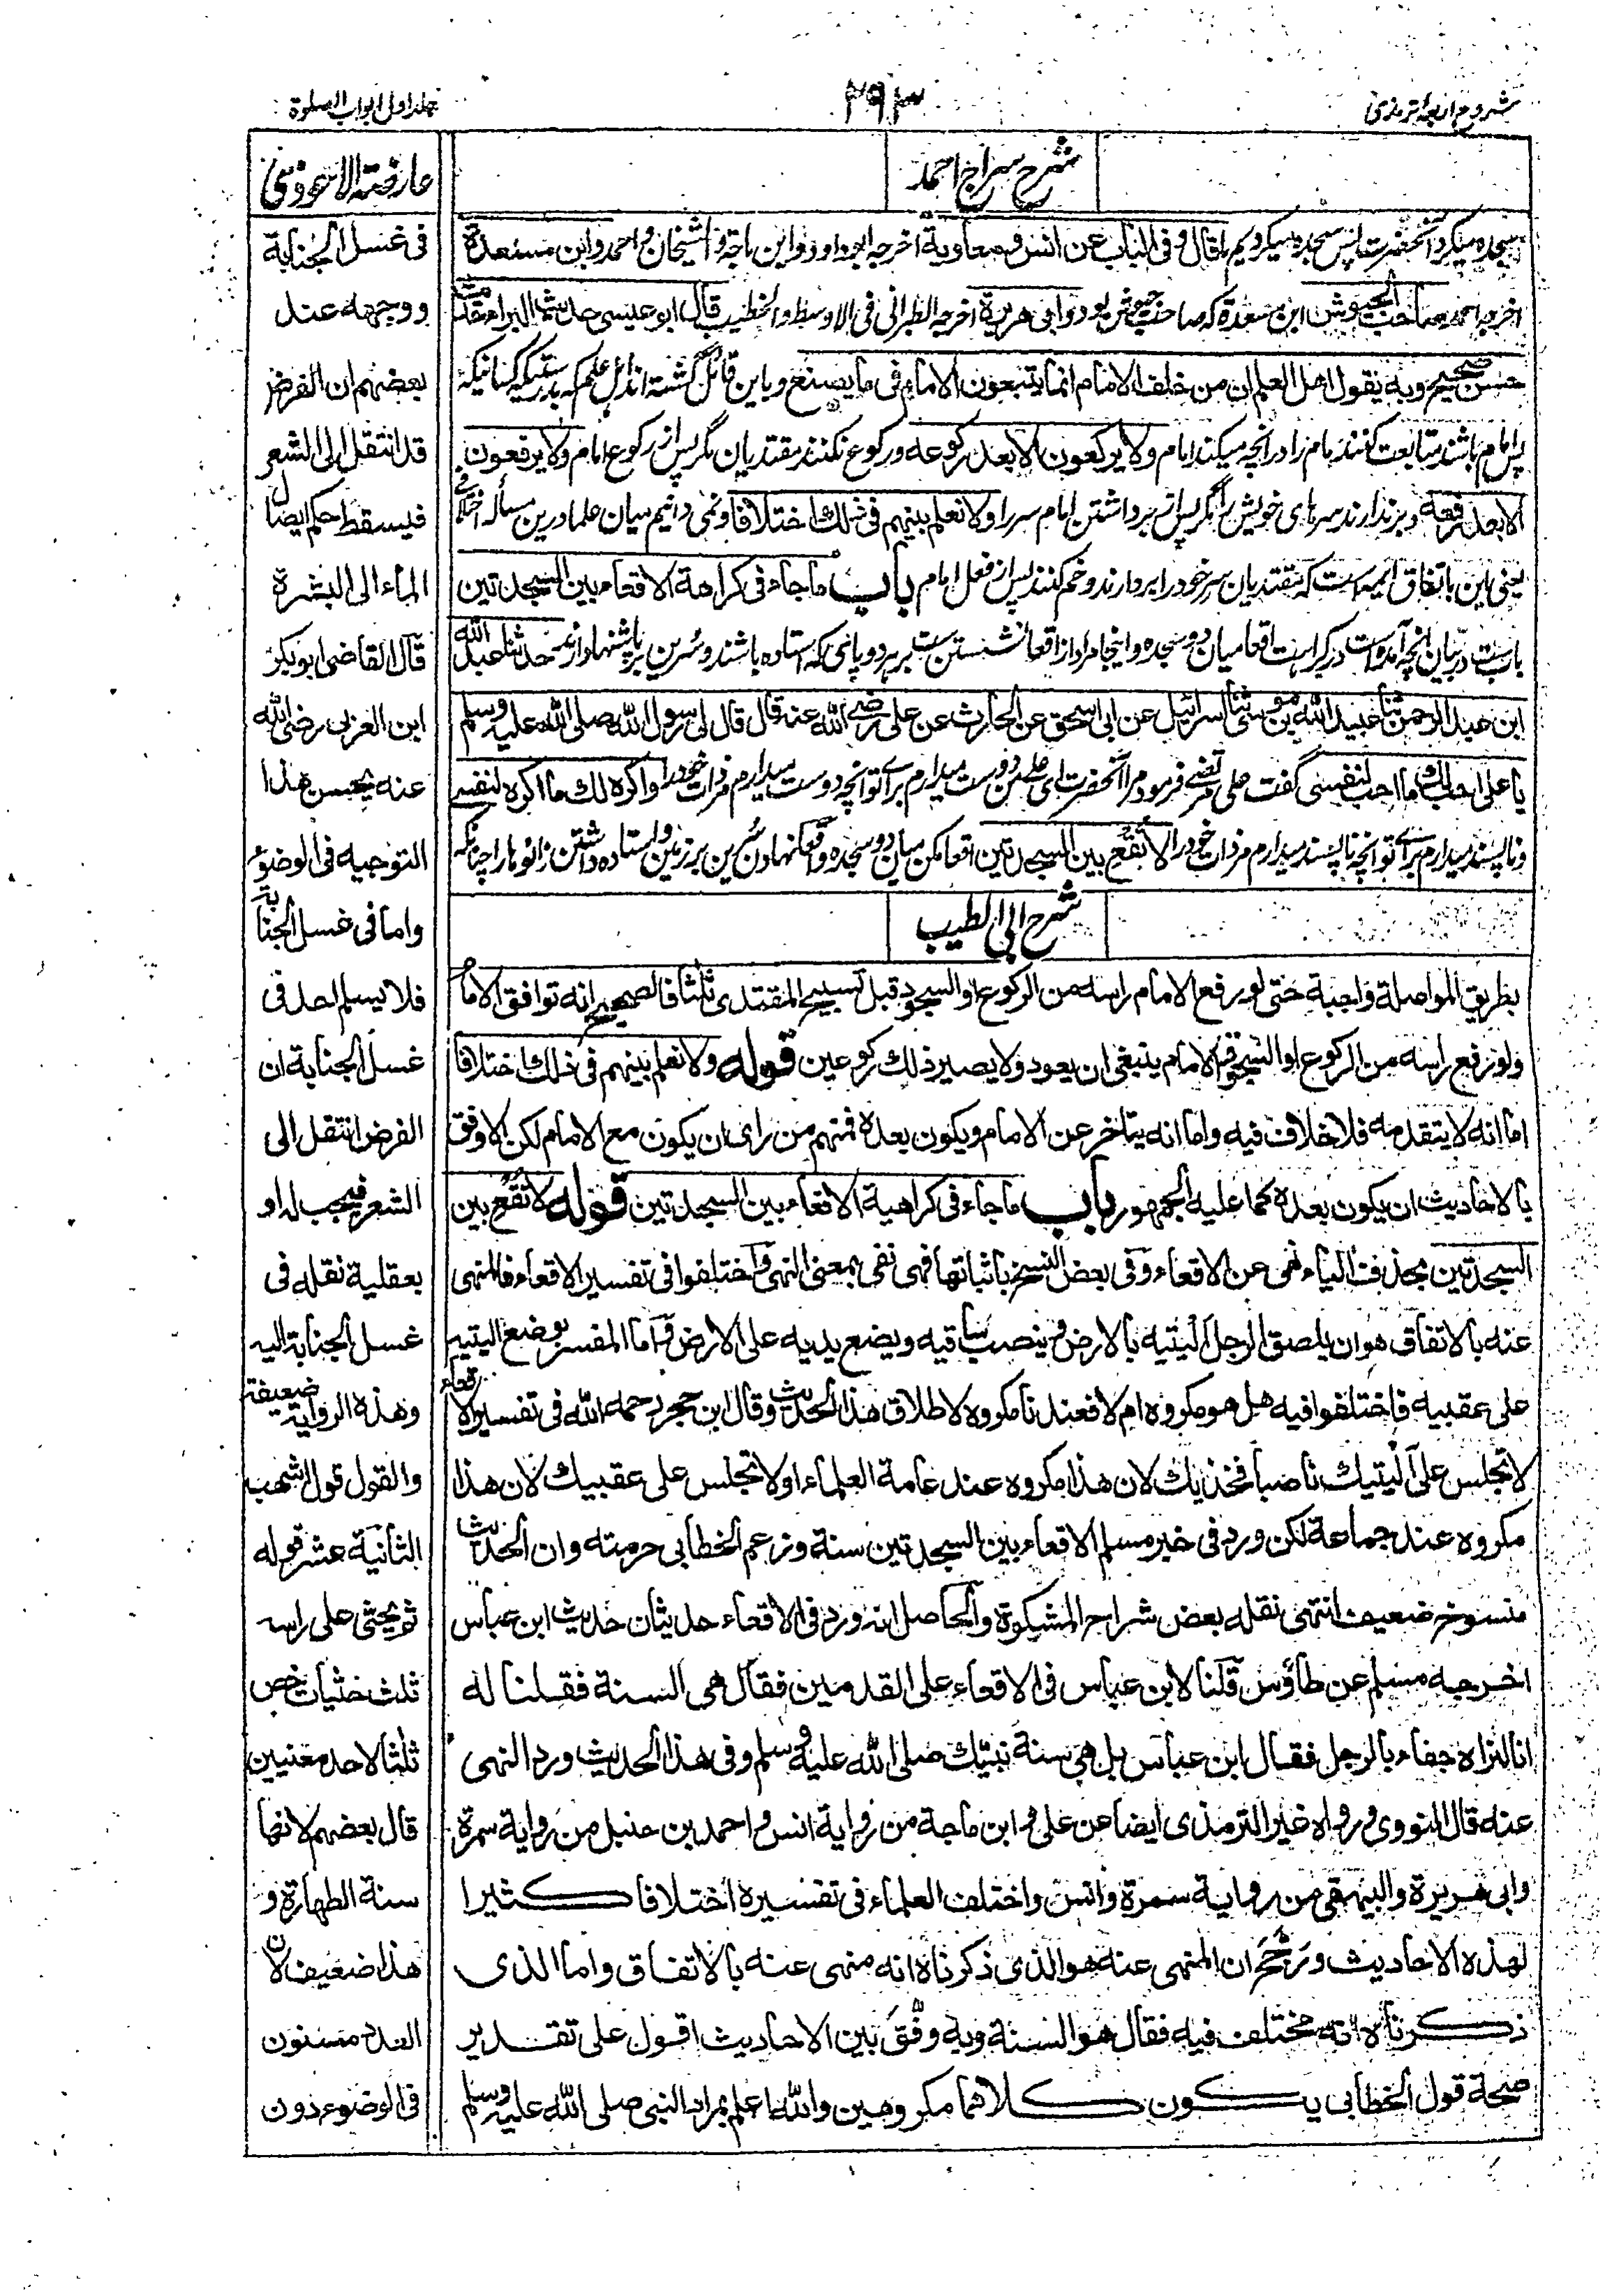 شروح اربعۂ ترمذی
۲۹۳
جلد اول ابواب الصلوة
شرح سراج احمد
سجده میکرد آنحضرت پس سجده میکردیم ما قال وفی الباب عن انس ومعاویة اخرجه ابو داود وابن ماجة والشیخان واحمد وابن مسعدة
اخرجه احمد صاحب الجیوش ابن مسعدة که صاحب جیوش بود وابی هریرة اخرجه الطبرانی فی الاوسط والخطیب قال ابو عیسی حدیث البراء حدیث
حسن صحیح وبه یقول اهل العلم ان من خلف الامام انما یتبعون الامام فی ما یصنع وباین قائل گشته اند اهل علم که بدرستیکه کسانیکه
پس امام باشند متابعت کنند امام را در آنچه میکند امام ولا یرکعون الا بعد رکوعه ورکوع نکنند مقتدیان مگر پس از رکوع امام ولا یرفعون
الا بعد رفعه وبر ندارند سرهای خویش را مگر پس از برداشتن امام سر را ولا نعلم بینهم فی ذلك اختلافا ونمی دانیم میان علما درین مسأله اختلافی
یعنی این باتفاق ائمه است که مقتدیان سر خود را بردارند وخم کنند پس از فعل امام باب ما جاء فی کراهة الاقعاء بین السجدتین
بابست در بیان آنچه آمده است در کراهت اقعا میان دو سجده واینجا مراد از اقعا نشستن ست بر هر دو پای که استاده باشند وسرین بر پاشنها دارد حدثنا عبد الله
ابن عبد الرحمن ثنا عبید الله بن موسی ثنا اسرائیل عن ابی اسحق عن الحارث عن علی رضی الله عنه قال قال لی رسول الله صلی الله علیه وسلم
یا علی احب لك ما احب لنفسی گفت علی مرتضی فرمود مرا آنحضرت ای علی من دوست میدارم برای تو آنچه دوست میدارم مر ذات خود را واکره لك ما اکره لنفسی
وناپسند میدارم برای تو آنچه ناپسند میدارم مر ذات خود را لا تقع بین السجدتین اقعا مکن میان دو سجده واقعا نهادن سرین بر زمین واستاده داشتن زانو ها را چنانکه
شرح ابی الطیب
بطریق المواصلة واجبة حتی لو رفع الامام راسه من الرکوع او السجود قبل تسبیح المقتدی ثلثا فالصحیح انه توافق الامام
ولو رفع راسه من الرکوع او السجود قبل الامام ینبغی ان یعود ولا یصیر ذلك رکوعین قوله ولا نعلم بینهم فی ذلك اختلافا
اما انه لا یتقدمه فلا خلاف فیه واما انه یتاخر عن الامام ویکون بعده فمنهم من رای ان یکون مع الامام لکن الاوفق
بالاحادیث ان یکون بعده کما علیه الجمهور باب ما جاء فی کراهیة الاقعاء بین السجدتین قوله لا تقع بین
السجدتین بحذف الیاء نهی عن الاقعاء وفی بعض النسخ باثباتها فهی نفی بمعنی النهی واختلفوا فی تفسیر الاقعاء فالمنهی
عنه بالاتفاق هو ان یلصق الرجل الیتیه بالارض وینصب ساقیه ویضع یدیه علی الارض واما المفسر بوضع الیتیه
علی عقبیه فاختلفوا فیه هل هو مکروه ام لا فعندنا مکروه لاطلاق هذا الحدیث وقال ابن حجر رحمه الله فی تفسیر الاقعاء
لا تجلس علی الیتیك ناصبا فخذیك لان هذا مکروه عند عامة العلماء او لا تجلس علی عقبیك لان هذا
مکروه عند جماعة لکن ورد فی خبر مسلم الاقعاء بین السجدتین سنة وزعم الخطابی حرمته وان الحدیث
منسوخ ضعیف انتهی نقله بعض شراح المشکوة والحاصل انه ورد فی الاقعاء حدیثان حدیث ابن عباس
اخرجه مسلم عن طاؤس قلنا لابن عباس فی الاقعاء علی القدمین فقال هی السنة فقلنا له
انا لنراه جفاء بالرجل فقال ابن عباس بل هی سنة نبیك صلی الله علیه وسلم وفی هذا الحدیث ورد النهی
عنه قال النووی ورواه غیر الترمذی ایضا عن علی وابن ماجة من روایة انس واحمد بن حنبل من روایة سمرة
وابی هریرة والبیهقی من روایة سمرة وانس واختلف العلماء فی تفسیره اختلافا کثیرا
لهذه الاحادیث ورجح ان المنهی عنه هو الذی ذکرناه انه منهی عنه بالاتفاق واما الذی
ذکرناه انه مختلف فیه فقال هو السنة وبه وفق بین الاحادیث اقول علی تقدیر
صحة قول الخطابی یکون کلاهما مکروهین والله اعلم بمراد النبی صلی الله علیه وسلم
عارضة الاحوذی
فی غسل الجنابة
ووجهه عند
بعضهم ان الفرض
قد انتقل الی الشعر
فیسقط حکم ایصال
الماء الی البشرة
قال القاضی ابو بکر
ابن العربی رضی الله
عنه یحسن هذا
التوجیه فی الوضوء
واما فی غسل الجنابة
فلا یسلم احد فی
غسل الجنابة ان
الفرض انتقل الی
الشعر فیجب له او
بعقلیة نقله فی
غسل الجنابة الیه
وهذه الروایة ضعیفة
والقول قول اشهب
الثانیة عشر قوله
ثم یحثی علی راسه
ثلث حثیات خص
ثلثا لاحد معنیین
قال بعضهم لانها
سنة الطهارة و
هذا ضعیف لان
العدد مسنون
فی الوضوء دون